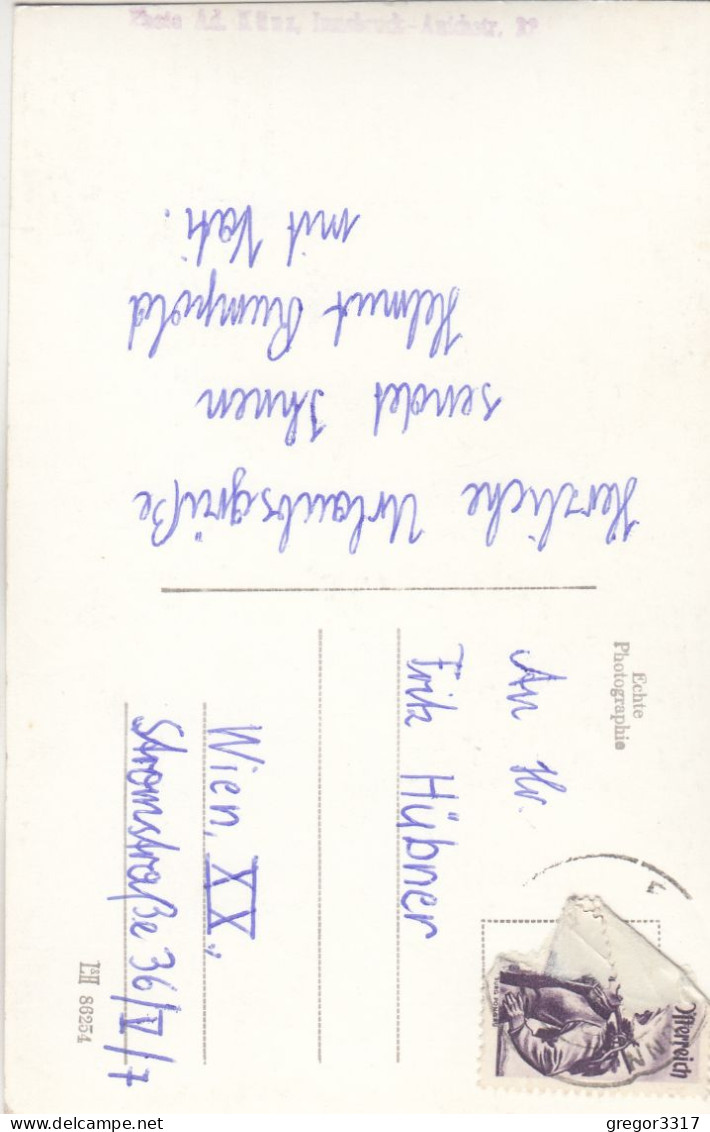 Photo Ad. Künz, Innsbruck-Anichstr.
Herzliche Urlaubsgrüße
sendet Ihnen
Helmut Rumpold
mit Vati.
Echte
Photographie
An Hr.
Fritz Hübner
Wien, XX,
Stromstraße 36/V/7
L&H 86254
Österreich
gregor3317